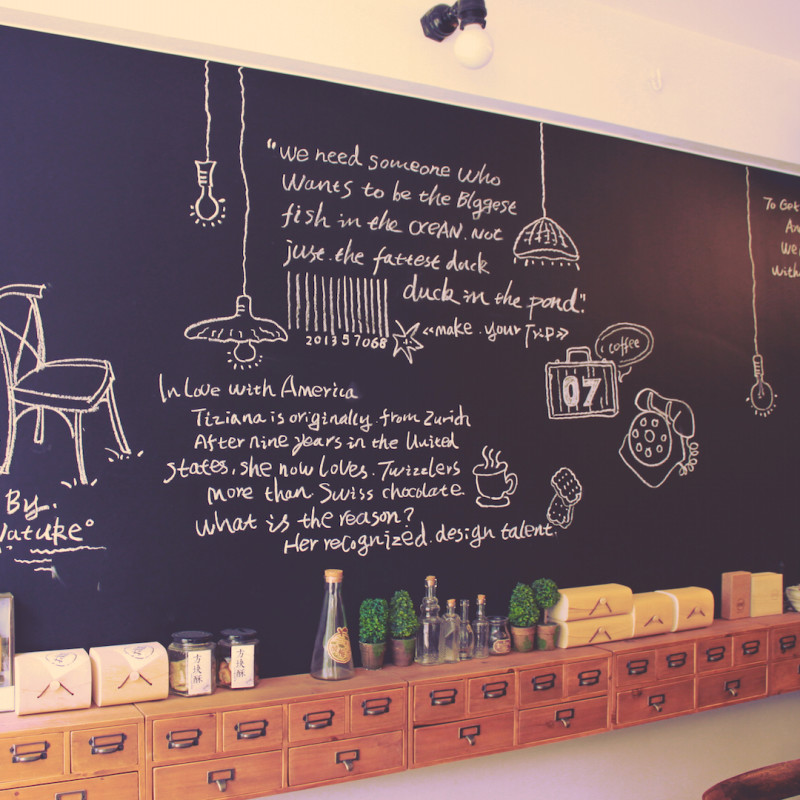 "We need someone who
Wants to be the Biggest
fish in the OCEAN. Not
just the fattest duck
duck in the pond".
201357068
«make your Trip»
coffee
07
In Love with America
Tiziana is originally from Zurich
After nine years in the United
States, she now loves. Twizzlers
more than Swiss chocolate.
what is the reason?
Her recognized design talent.
By.
To Get
We
with
方塊酥
方塊酥